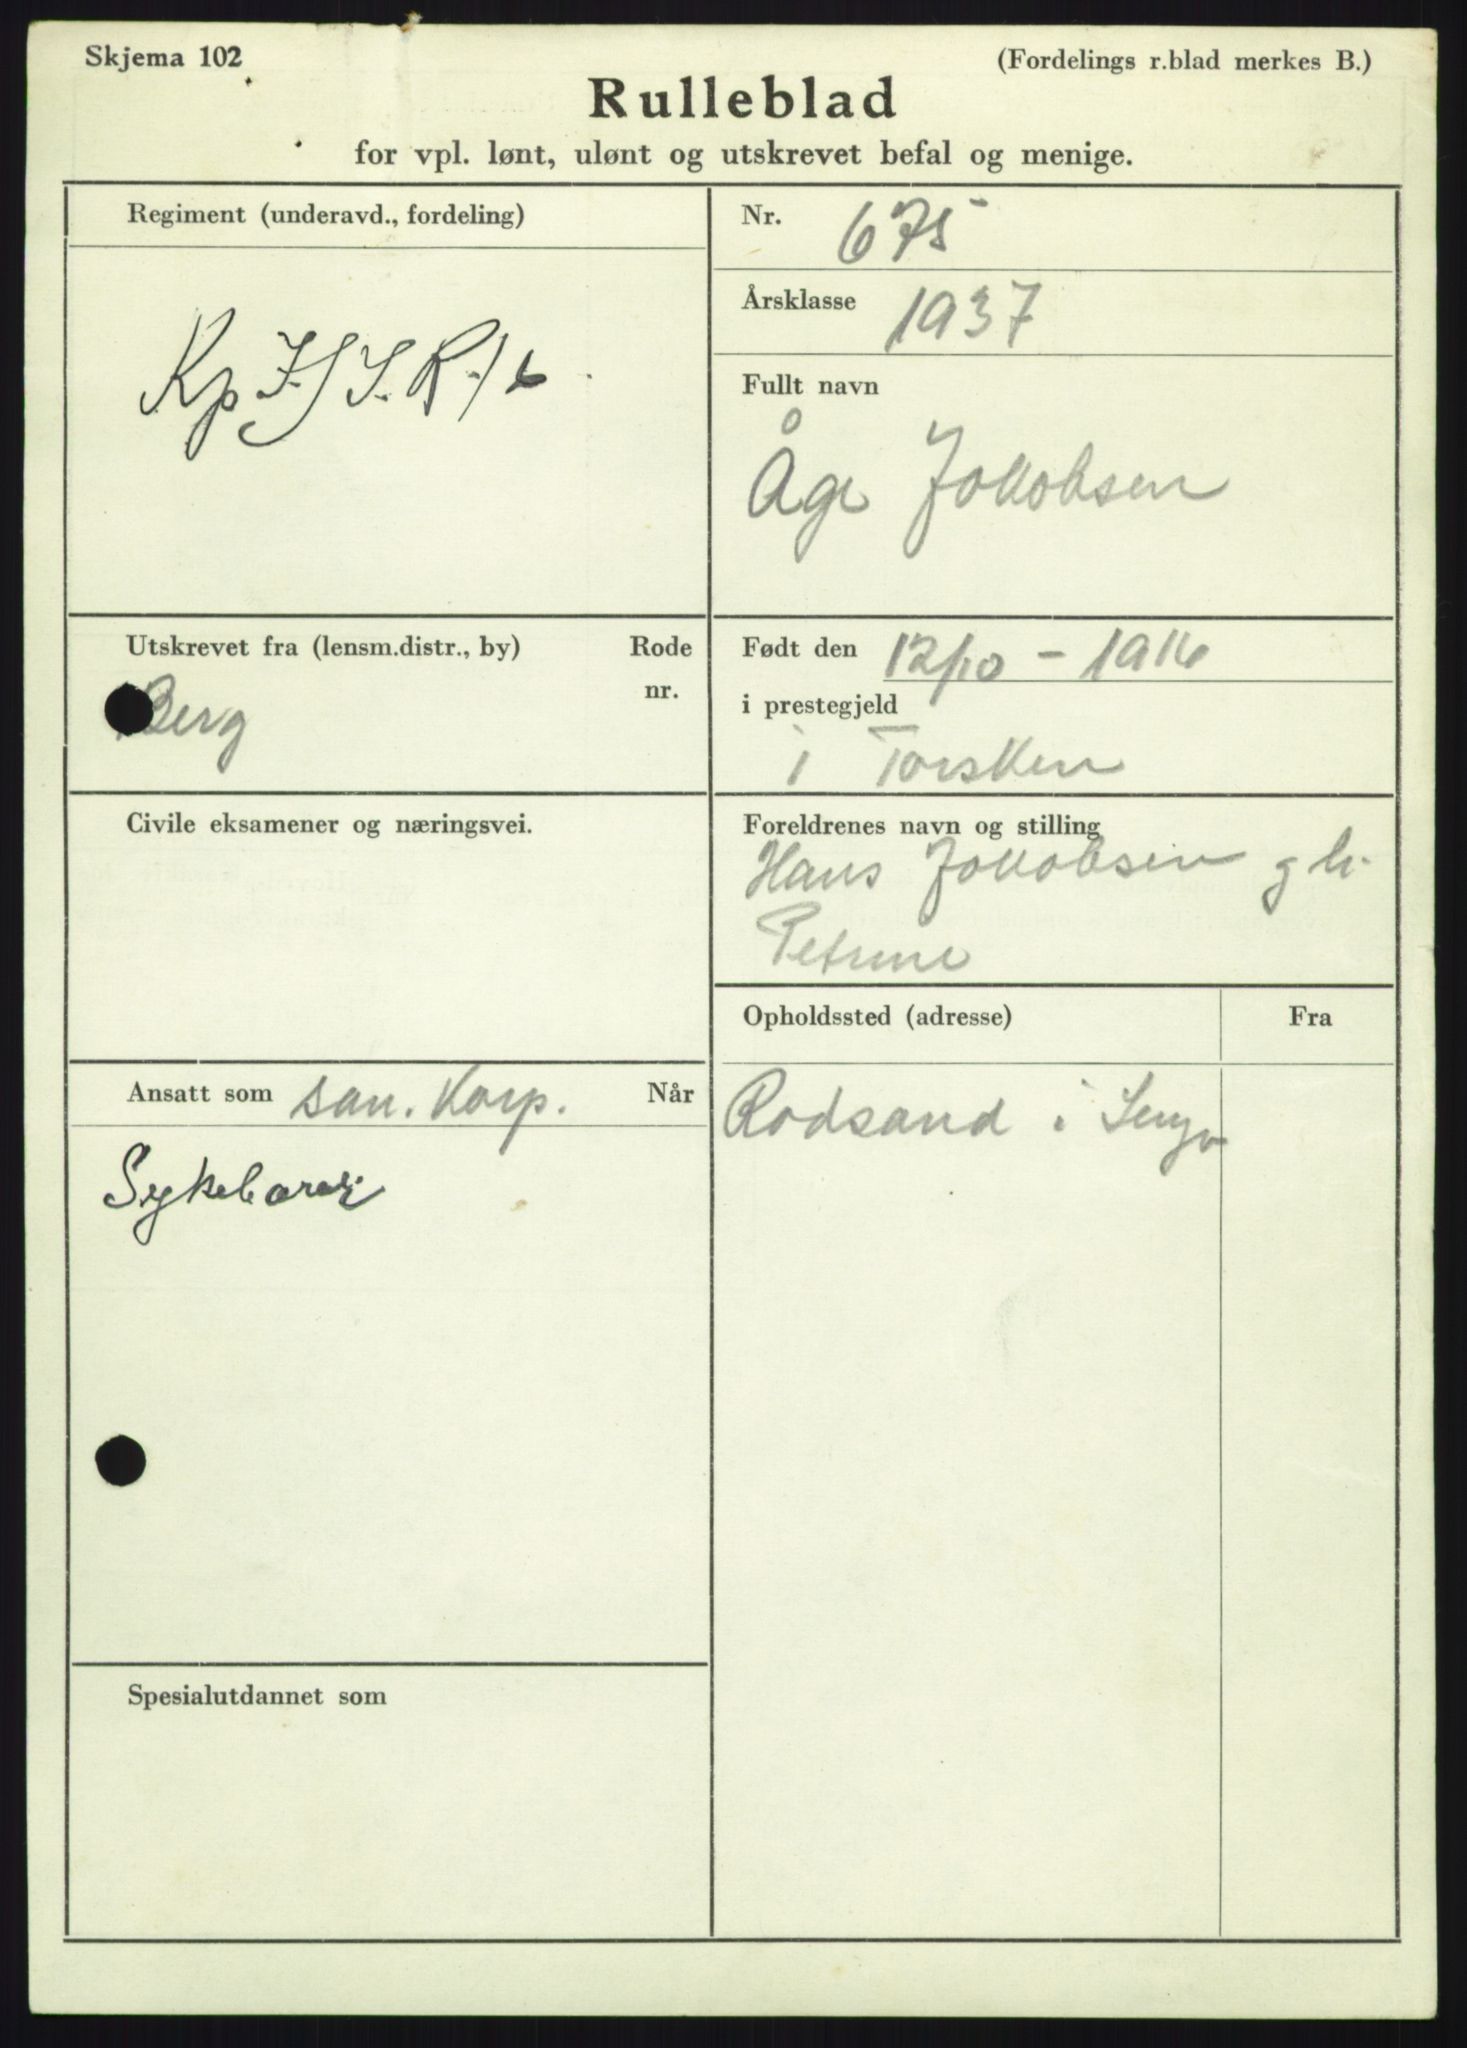 Skjema 102
(Fordelings r.blad merkes B.)
Rulleblad
for vpl. lønt, ulønt og utskrevet befal og menige.
Regiment (underavd., fordeling)
Kp 7/I.R.16
Nr. 675
Årsklasse 1937
Fullt navn
Åge Jakobsen
Utskrevet fra (lensm.distr., by)
Rode nr.
Berg
Født den 12/10 - 1916
i prestegjeld
i Torsken
Civile eksamener og næringsvei.
Foreldrenes navn og stilling
Hans Jakobsen g h.
Petrine
Opholdssted (adresse)
Fra
Ansatt som san. korp.
Når
Rodsand i Senja
Sykebærer
Spesialutdannet som